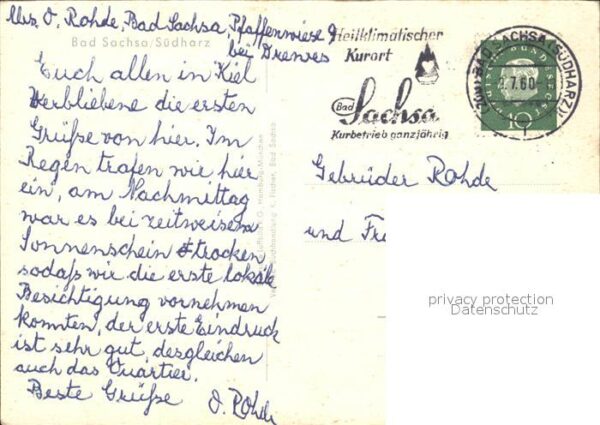 Abs. O. Rohde, Bad Sachsa, Pfaffenwiese 9
bei Drewes
Bad Sachsa/Südharz
Euch allen in Kiel
Verbliebene die ersten
Grüße von hier. Im
Regen trafen wir hier
ein, am Nachmittag
war es bei zeitweisem
Sonnenschein trocken
sodaß wir die erste lokale
Besichtigung vornehmen
konnten, der erste Eindruck
ist sehr gut, desgleichen
auch das Quartier.
Beste Grüße O. Rohde
Heilklimatischer
Kurort
Bad
Sachsa
Kurbetrieb ganzjährig
BAD SACHSA (SÜDHARZ)
7.60
10
Gebrüder Rohde
und Fr
privacy protection
Datenschutz